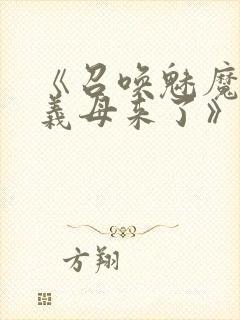 《召唤魅魔
義母来了》
方翔